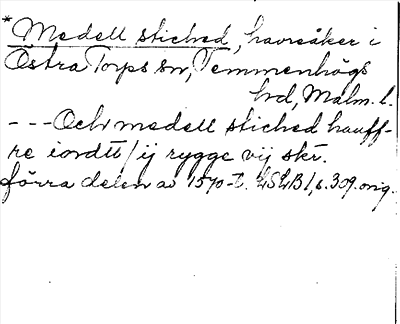 *Medell stiched, havreåker i
Östra Torps sn, Vemmenhögs
hrd, Malm. l.
---Och medell stiched hauff-
re iordtt/ij rygge vij skr.
förra delen av 1570-t. LSLB1, s. 309. orig.